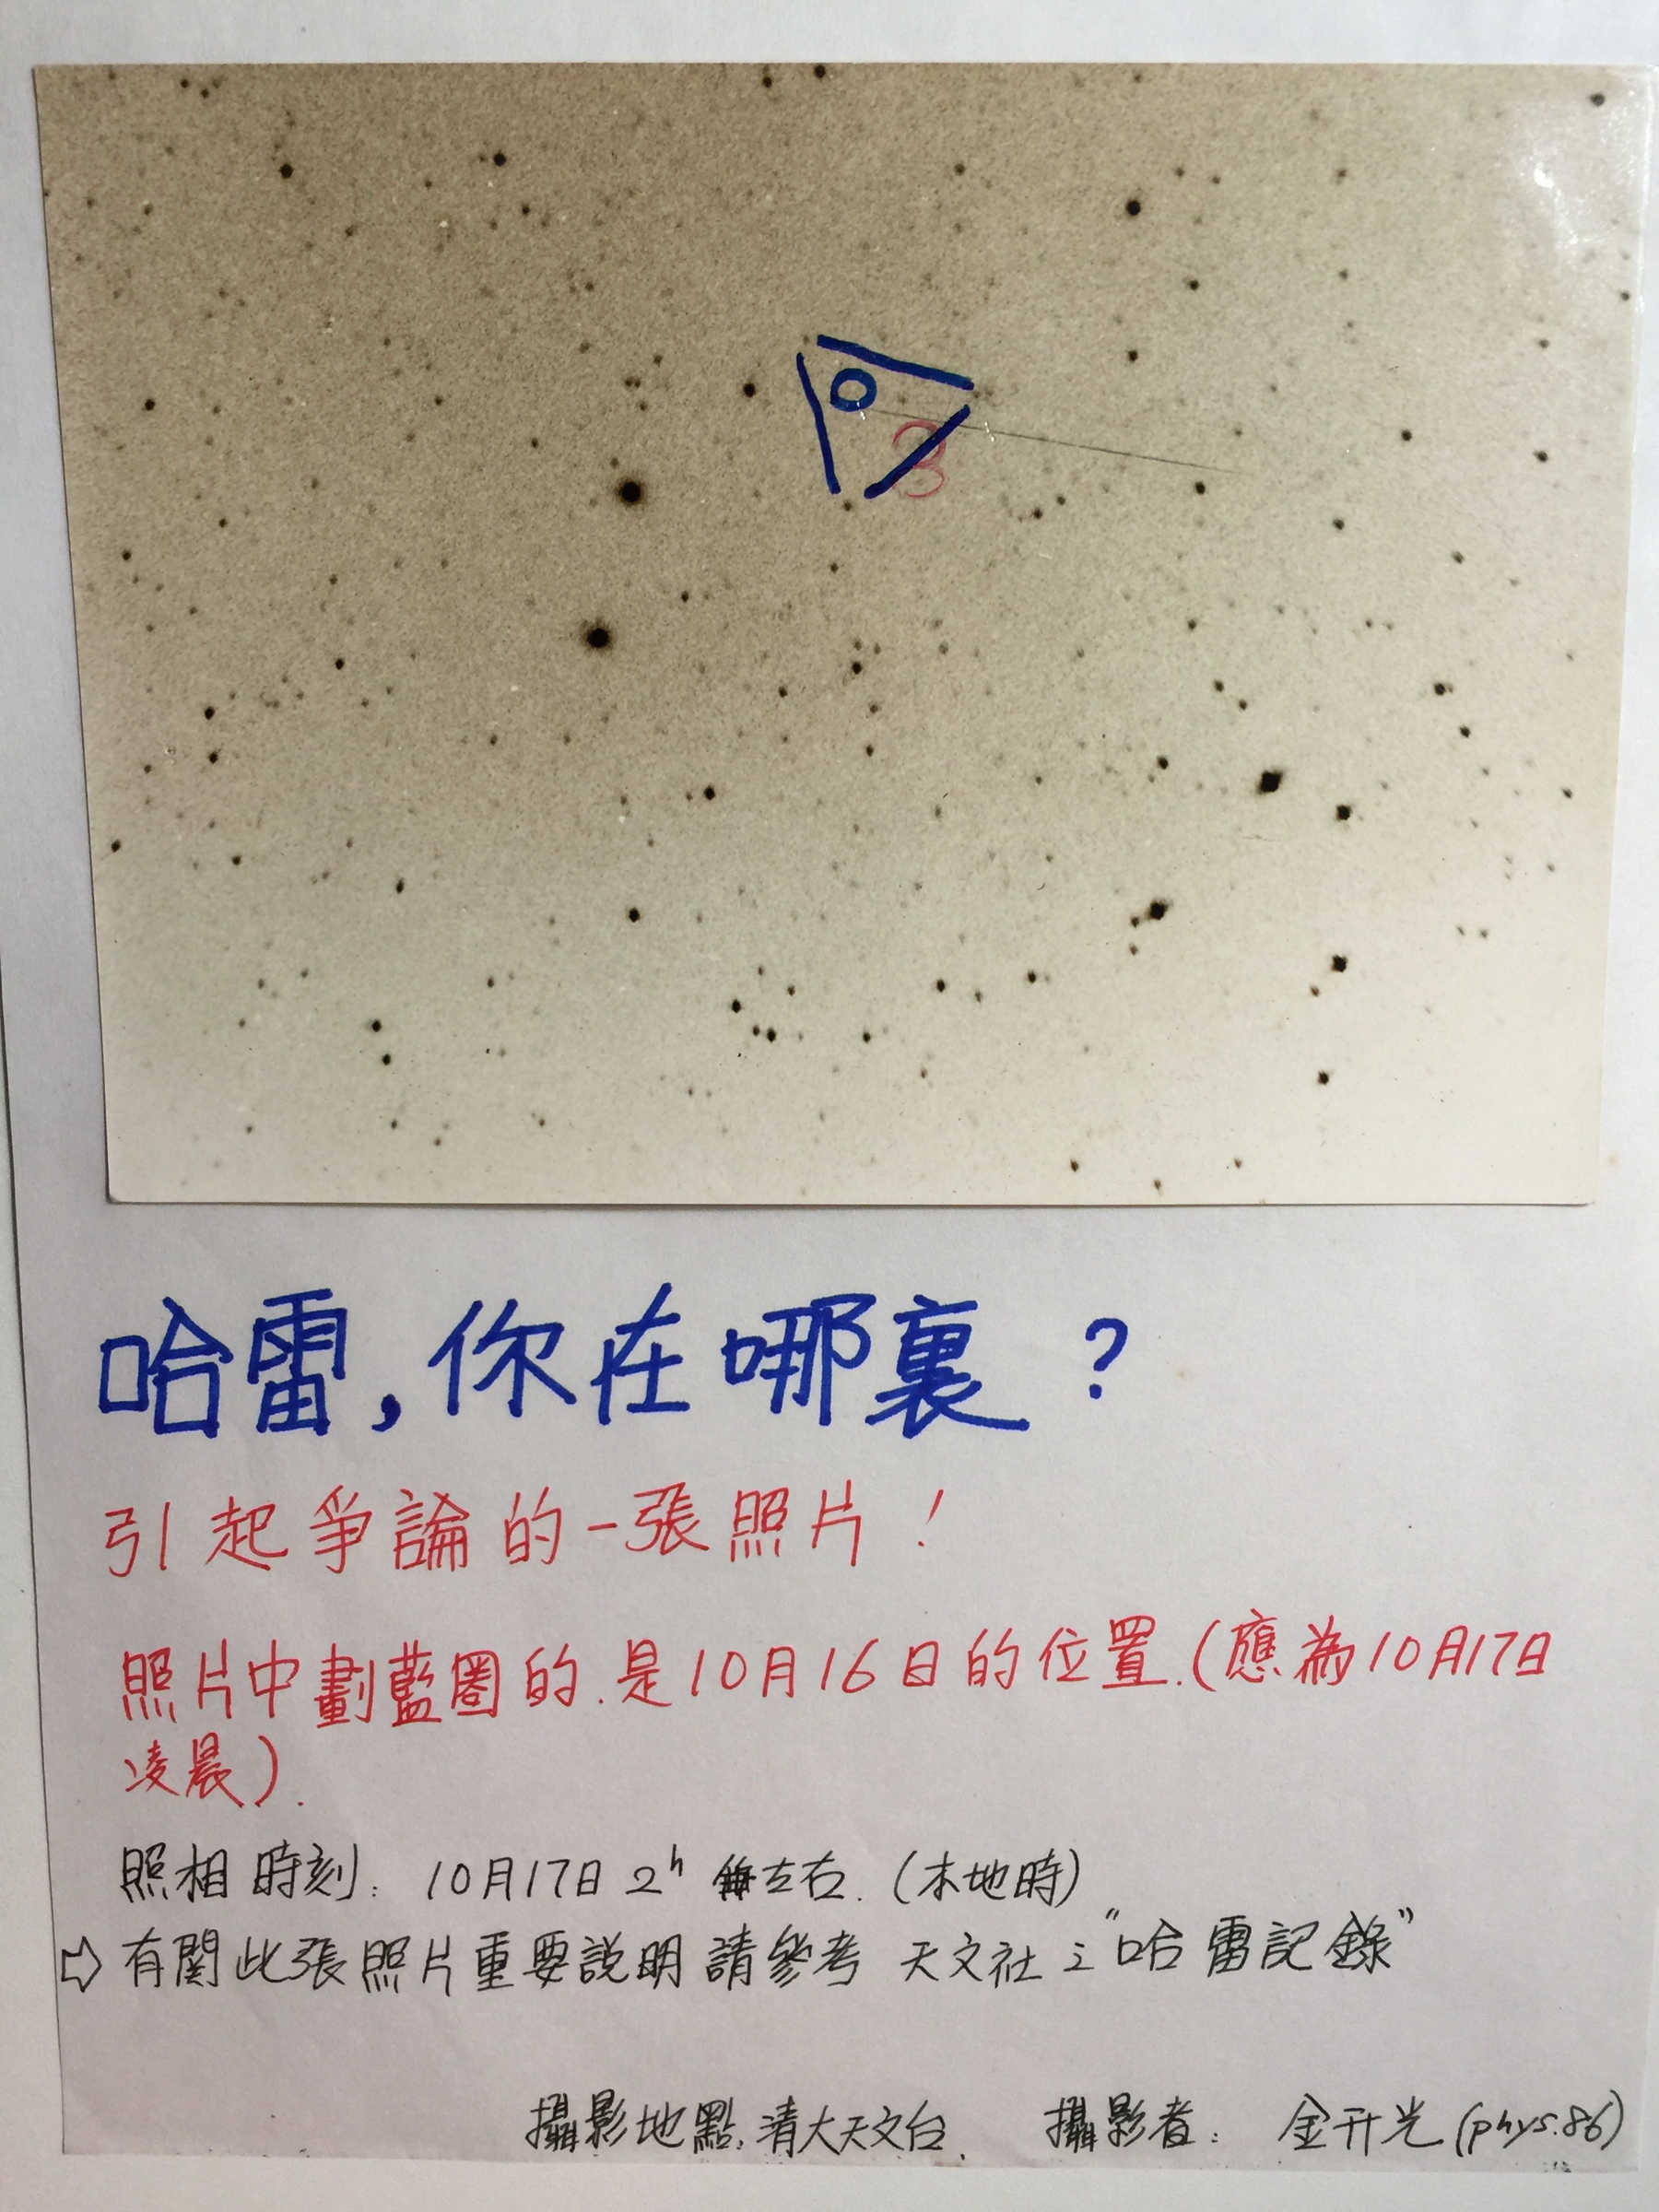 3
哈雷,你在哪裏?
引起爭論的一張照片!
照片中劃藍圈的.是10月16日的位置.(應為10月17日
凌晨).
照相時刻: 10月17日 2h 左右.(本地時)
⇨有関此張照片重要説明請參考 天文社之"哈雷記錄"
攝影地點:清大天文台. 攝影者: 金升光(phys.86)